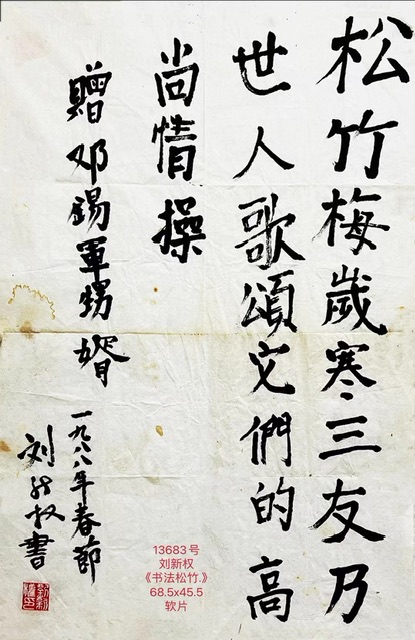 松竹梅歲寒三友乃
世人歌頌它們的高
尚情操
贈邓錫軍甥婿
一九八八年春節
刘新权書
13683号
刘新权
《书法松竹.》
68.5x45.5
软片